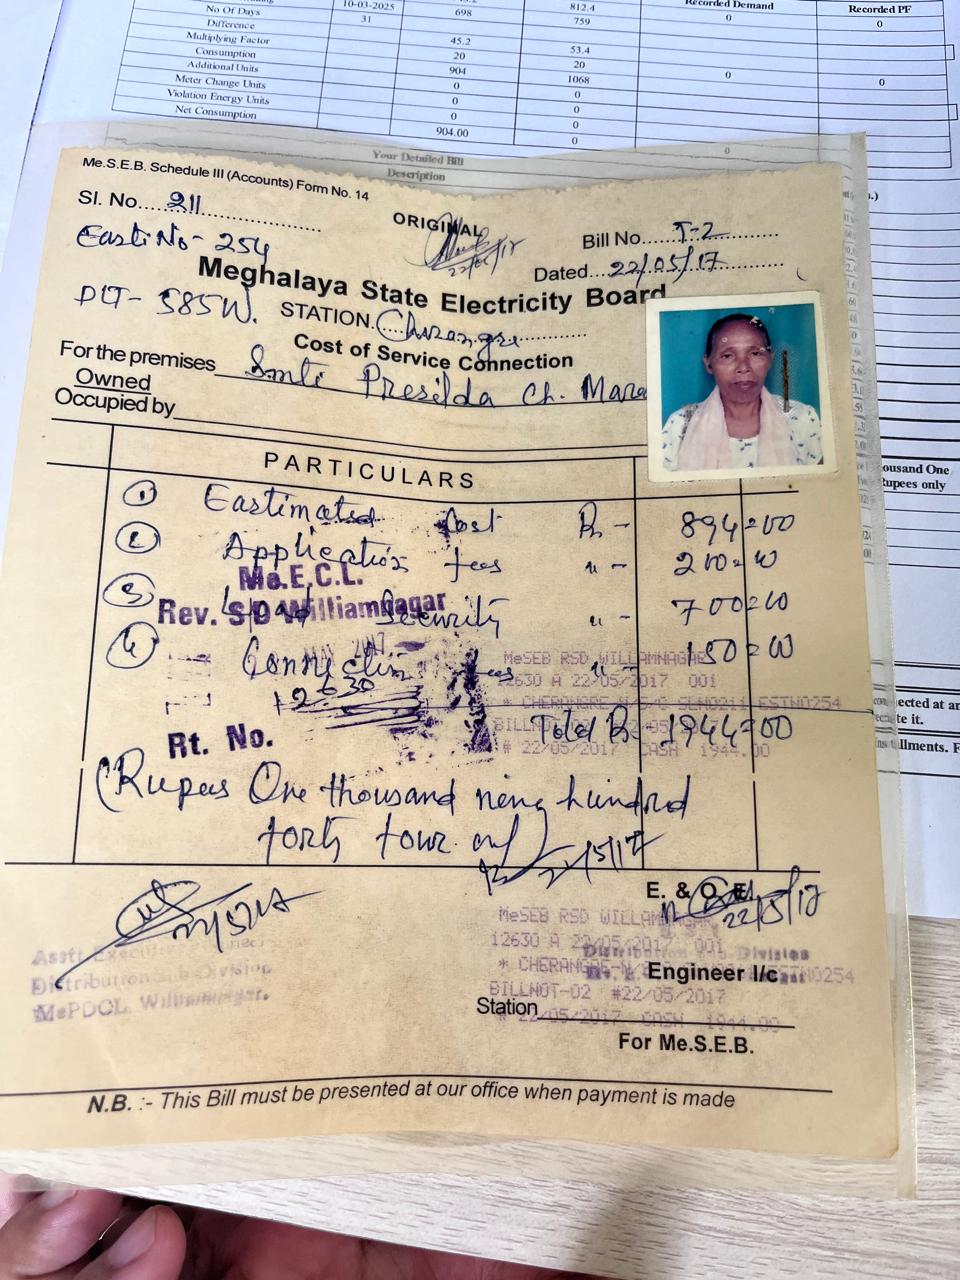 10-03-2025 Recorded Demand Recorded PF
No Of Days 31 698 812.4 0 0
Difference 759
Multiplying Factor 45.2 53.4
Consumption 20 20
Additional Units 904 1068 0 0
Meter Change Units 0 0
Violation Energy Units 0 0
Net Consumption 0 0
904.00 0 0
Your Detailed Bill
Description
Me.S.E.B. Schedule III (Accounts) Form No. 14
Sl. No. 211
ORIGINAL
Bill No. T-2
Easti No- 254
22/05/17
Dated 22/05/17
Meghalaya State Electricity Board
DCT- 585W.
STATION
Cost of Service Connection
For the premises Smti Presilda Ch. Mara
Owned
Occupied by
PARTICULARS
ousand One
Rupees only
① Eastimated Cost Rs - 894=00
② Application fees " - 200=00
Me.E.C.L.
Rev. S D Williamnagar
③ Load Security " - 700=00
④ Connection fees " - 150=00
MeSEB RSD WILLAMNAGAR
12630 A 22/05/2017 001
12630
* CHERANGRE SLNO211 ESTN0254
Total Rs- 1944=00
BILLNOT-02 #22/05/2017
# 22/05/2017 CASH 1944.00
Rt. No.
(Rupees One thousand nine hundred
forty four only)
22/5/17
E. & O. E.
22/5/17
22/5/17
MeSEB RSD WILLAMNAGAR
12630 A 22/05/2017 001
Distribution Sub-Division
* CHERANGRE ESTN0254
Engineer I/c
BILLNOT-02 #22/05/2017
Station
# 22/05/2017 CASH 1944.00
For Me.S.E.B.
Asstt Executive Engineer
Distribution Sub-Division
MePDCL Williamnagar.
N.B. :- This Bill must be presented at our office when payment is made